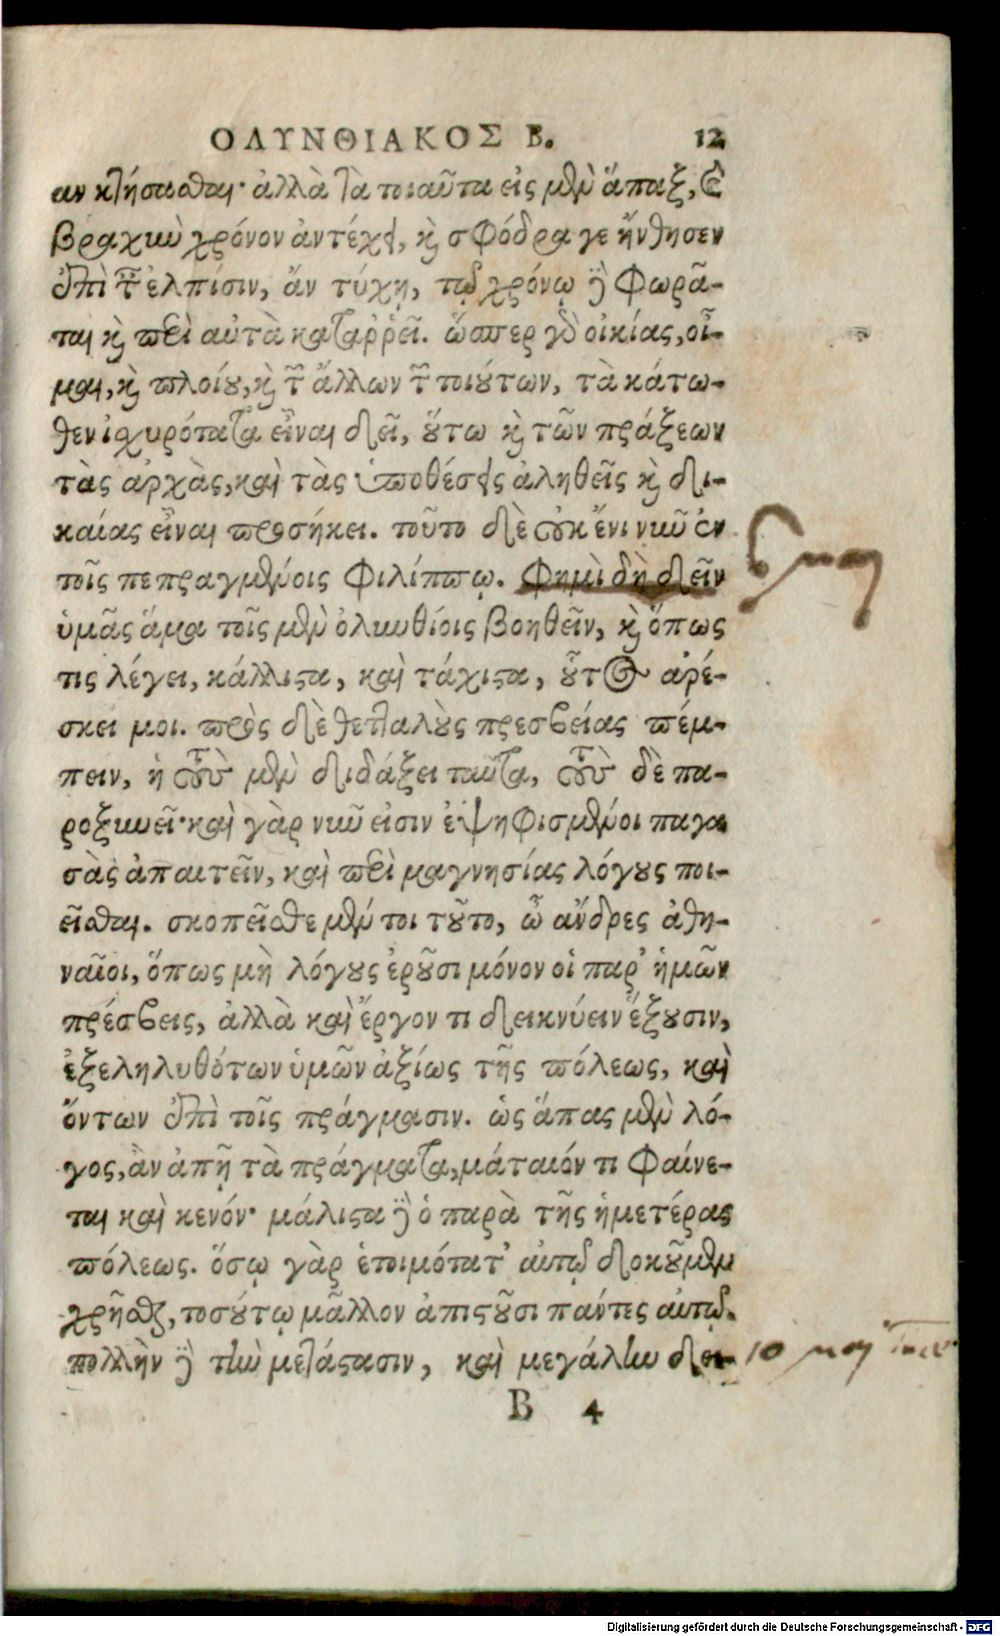 ΟΛΥΝΘΙΑΚΟΣ Β. 12
αν κτήσασθαι· ἀλλὰ τὰ τοιαῦτα εἰς μὲν ἅπαξ, καὶ
βραχὺν χρόνον ἀντέχει, καὶ σφόδρα γε ἤνθησεν
ἐπὶ τ ἐλπίσιν, ἂν τύχῃ, τῷ χρόνῳ δὲ φωρᾶ-
ται καὶ περὶ αὐτὰ καταῤῥεῖ. ὥσπερ γὰρ οἰκίας, οἶ-
μαι, καὶ πλοίου, καὶ τῶν ἄλλων τῶν τοιούτων, τὰ κάτω-
θεν ἰσχυρότατα εἶναι δεῖ, οὕτω καὶ τῶν πράξεων
τὰς ἀρχὰς, καὶ τὰς ὑποθέσεις ἀληθεῖς καὶ δι-
καίας εἶναι προσήκει. τοῦτο δὲ οὐκ ἔνι νῦν ἐν
τοῖς πεπραγμένοις Φιλίππῳ. Φημὶ δὴ δεῖν
ὑμᾶς ἅμα τοῖς μὲν ὀλυνθίοις βοηθεῖν, καὶ ὅπως
τις λέγει, κάλλιστα, καὶ τάχιστα, οὕτως ἀρέ-
σκει μοι. πρὸς δὲ θετταλοὺς πρεσβείας πέμ-
πειν, ἣ τοὺς μὲν διδάξει ταῦτα, τοὺς δὲ πα-
ροξυνεῖ· καὶ γὰρ νῦν εἰσιν ἐψηφισμένοι παγα
σὰς ἀπαιτεῖν, καὶ περὶ μαγνησίας λόγους ποι-
εῖσθαι. σκοπεῖσθε μέν τοι τοῦτο, ὦ ἄνδρες ἀθη-
ναῖοι, ὅπως μὴ λόγους ἐροῦσι μόνον οἱ παρ' ἡμῶν
πρέσβεις, ἀλλὰ καὶ ἔργον τι δεικνύειν ἕξουσιν,
ἐξεληλυθότων ὑμῶν ἀξίως τῆς πόλεως, καὶ
ὄντων ἐπὶ τοῖς πράγμασιν. ὡς ἅπας μὲν λό-
γος, ἂν ἀπῇ τὰ πράγματα, μάταιόν τι φαίνε-
ται καὶ κενόν· μάλιστα δὲ ὁ παρὰ τῆς ἡμετέρας
πόλεως. ὅσῳ γὰρ ἑτοιμότατ' αὐτῷ δοκοῦμεν
χρῆσθαι, τοσούτῳ μᾶλλον ἀπιστοῦσι πάντες αὐτῷ.
πολλὴν δὲ τὴν μετάστασιν, καὶ μεγάλην δει-
B 4
Digitalisierung gefördert durch die Deutsche Forschungsgemeinschaft - DFG